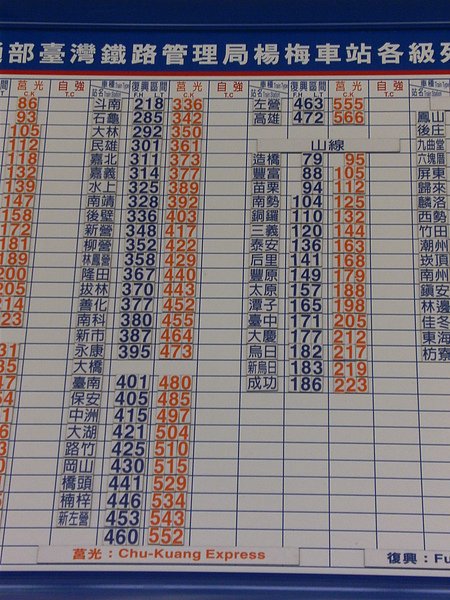 部臺灣鐵路管理局楊梅車站各級列
莒光 自強 車種 Train Type 復興 區間 莒光 自強 車種 Train Type 復興 區間 莒光 自強 車種 Train Type
C.K T.C 站名 F.H L.T C.K T.C 站名 F.H L.T C.K T.C 站名
86 斗南 218 336 左營 463 555
93 石龜 285 342 高雄 472 566 鳳山
105 大林 292 350 後庄
112 民雄 301 361 山線 九曲堂
118 嘉北 311 373 造橋 79 95 六塊厝
132 嘉義 314 377 豐富 88 105 屏東
139 水上 325 389 苗栗 94 112 歸來
147 南靖 328 392 南勢 104 125 麟洛
158 後壁 336 403 銅鑼 110 132 西勢
172 新營 348 417 三義 120 144 竹田
181 柳營 352 422 泰安 136 163 潮州
189 林鳳營 358 429 后里 141 168 崁頂
200 隆田 367 440 豐原 149 179 南州
205 拔林 370 443 太原 157 188 鎮安
214 善化 377 452 潭子 165 198 林邊
223 南科 380 455 臺中 171 205 佳冬
新市 387 464 大慶 177 212 東海
31 永康 395 473 烏日 182 217 枋寮
35 大橋 新烏日 183 219
47 臺南 401 480 成功 186 223
54 保安 405 485
中洲 415 497
大湖 421 504
路竹 425 510
岡山 430 515
橋頭 441 529
楠梓 446 534
新左營 453 543
460 552
莒光：Chu-Kuang Express 復興：Fu